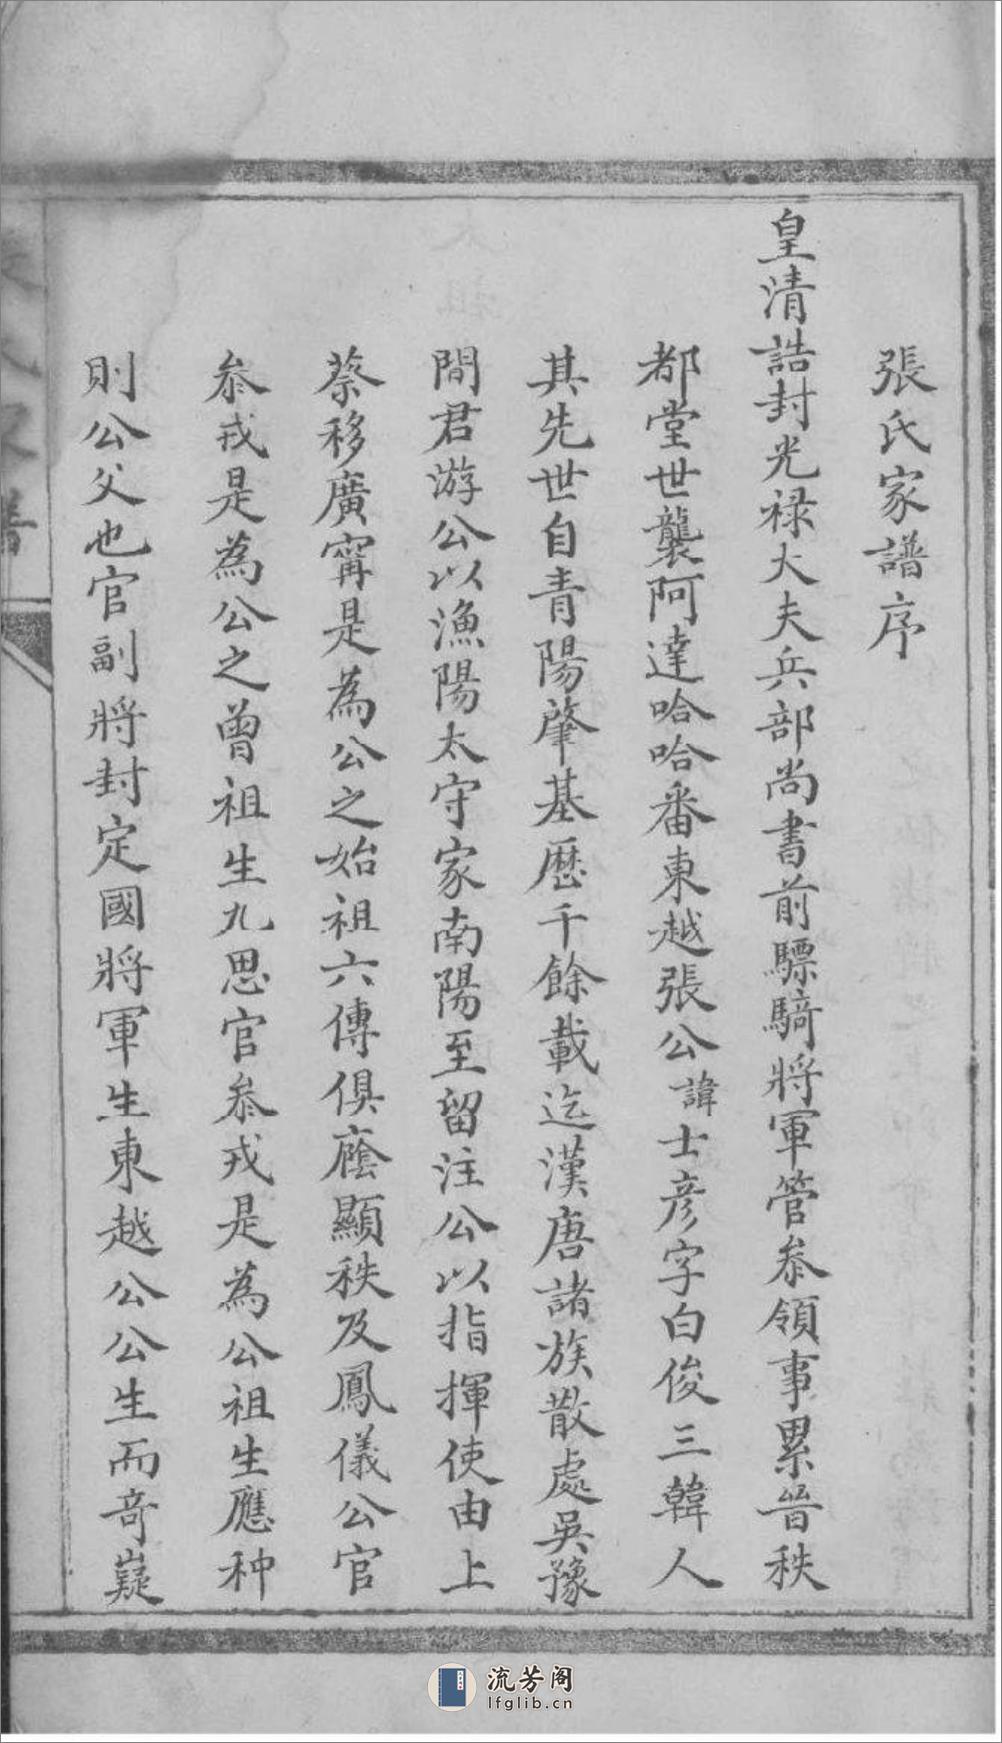 張氏家譜序
皇清誥封光祿大夫兵部尚書前驃騎將軍管叅領事累晉秩
都堂世襲阿達哈哈番東越張公諱士彥字白俊三韓人
其先世自青陽肇基歷千餘載迄漢唐諸族散處吳豫
間君游公以漁陽太守家南陽至留注公以指揮使由上
蔡移廣甯是為公之始祖六傳俱廕顯秩及鳳儀公官
叅戎是為公之曾祖生九思官叅戎是為公祖生應种
則公父也官副將封定國將軍生東越公公生而奇嶷
流芳阁
lfglib.cn